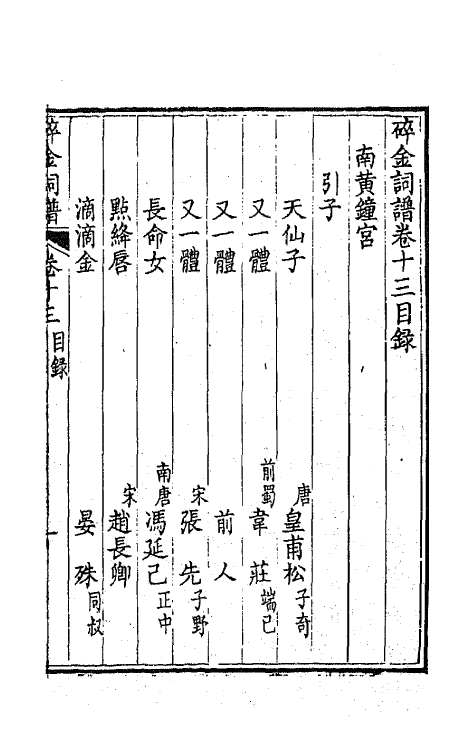 碎金詞譜卷十三目録
南黄鐘宮
引子
天仙子 唐皇甫松子奇
又一體 前蜀韋莊端已
又一體 前人
又一體 宋張先子野
長命女 南唐馮延己正中
點絳唇 宋趙長卿
滴滴金 晏殊同叔
碎金詞譜 卷十三目録 一